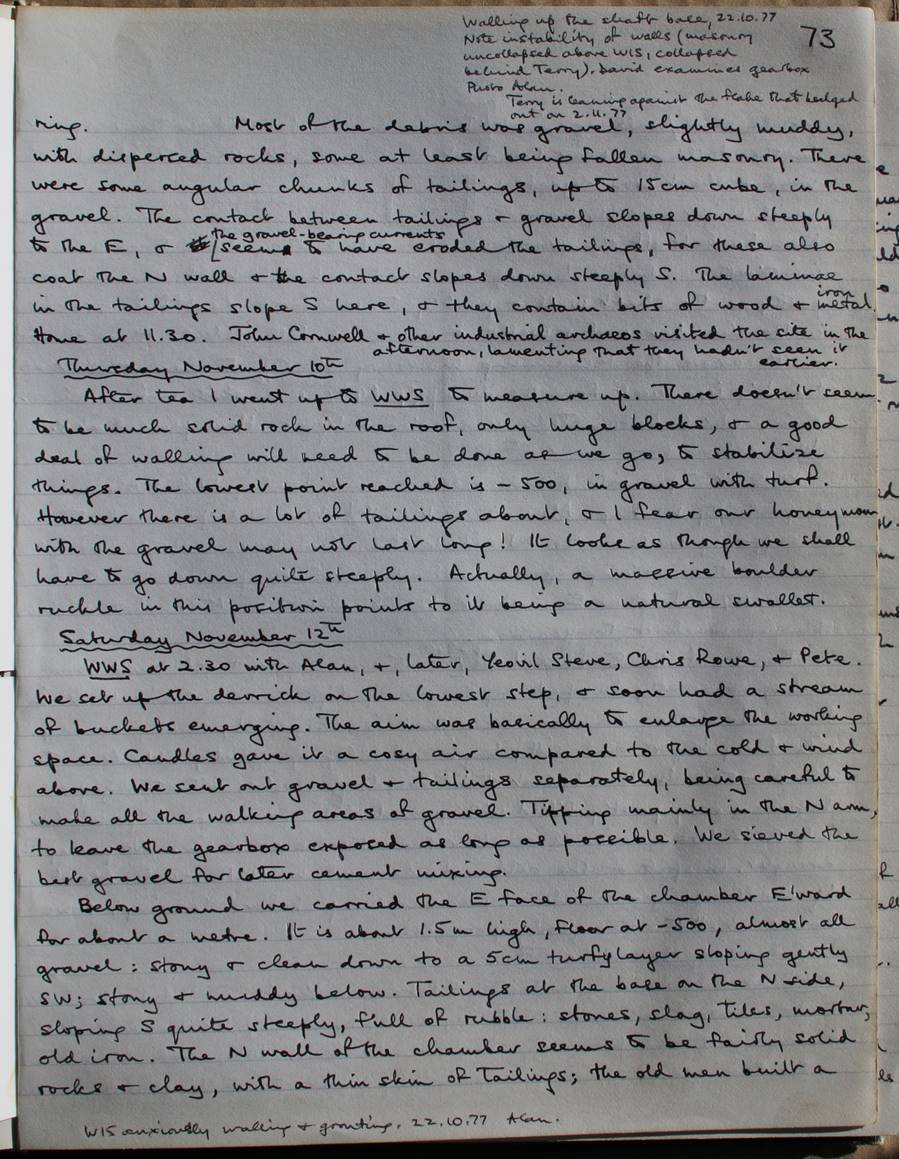 Walling up the shaft base, 22.10.77
Note instability of walls (masonry
uncollapsed above WIS, collapsed
behind Terry). David examines gearbox
Photo Alan.
Terry is leaning against the flake that bulged
out on 2.11.77
73
ring. Most of the debris was gravel, slightly muddy,
with disperced rocks, some at least being fallen masonry. There
were some angular chunks of tailings, up to 15cm cube, in the
gravel. The contact between tailings & gravel slopes down steeply
the gravel-bearing currents
to the E, & seem to have eroded the tailings, for these also
coat the N wall & the contact slopes down steeply S. The laminae
in the tailings slope S here, & they contain bits of wood & iron metal.
Home at 11.30. John Cornwell & other industrial archaeos visited the site in the
afternoon, lamenting that they hadn't seen it
earlier.
Thursday November 10th
After tea I went up to WWS to measure up. There doesn't seem
to be much solid rock in the roof, only huge blocks, & a good
deal of walling will need to be done as we go, to stabilize
things. The lowest point reached is -500, in gravel with turf.
However there is a lot of tailings about, & I fear our honeymoon
with the gravel may not last long! It looks as though we shall
have to go down quite steeply. Actually, a massive boulder
ruckle in this position points to it being a natural swallet.
Saturday November 12th
WWS at 2.30 with Alan, &, later, Yeovil Steve, Chris Rowe, & Pete.
We set up the derrick on the lowest step, & soon had a stream
of buckets emerging. The aim was basically to enlarge the working
space. Candles gave it a cosy air compared to the cold & wind
above. We sent out gravel & tailings separately, being careful to
make all the walking areas of gravel. Tipping mainly in the N arm,
to leave the gearbox exposed as long as possible. We sieved the
best gravel for later cement mixing.
Below ground we carried the E face of the chamber E'ward
for about a metre. It is about 1.5m high, floor at -500, almost all
gravel: stony & clean down to a 5cm turfy layer sloping gently
SW; stony & muddy below. Tailings at the base on the N side,
sloping S quite steeply, full of rubble: stones, slag, tiles, mortar,
old iron. The N wall of the chamber seems to be fairly solid
rocks & clay, with a thin skin of tailings; the old men built a
WIS anxiously walling & grouting. 22.10.77 Alan.